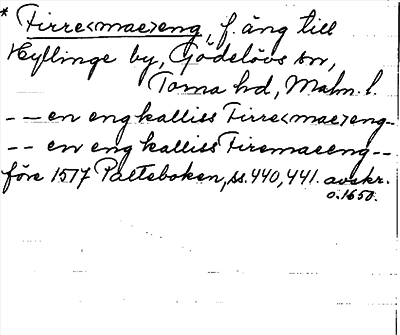 * Firre<mae>eng, f. äng till
Hyllinge by, Gödelövs sn,
Torna hd, Malm. l.
-- en eng kalliss Firre<mae>eng-
-- en eng kalliss Firemaeeng--
före 1517 Palteboken, ss. 440, 441. avskr.
o. 1650.